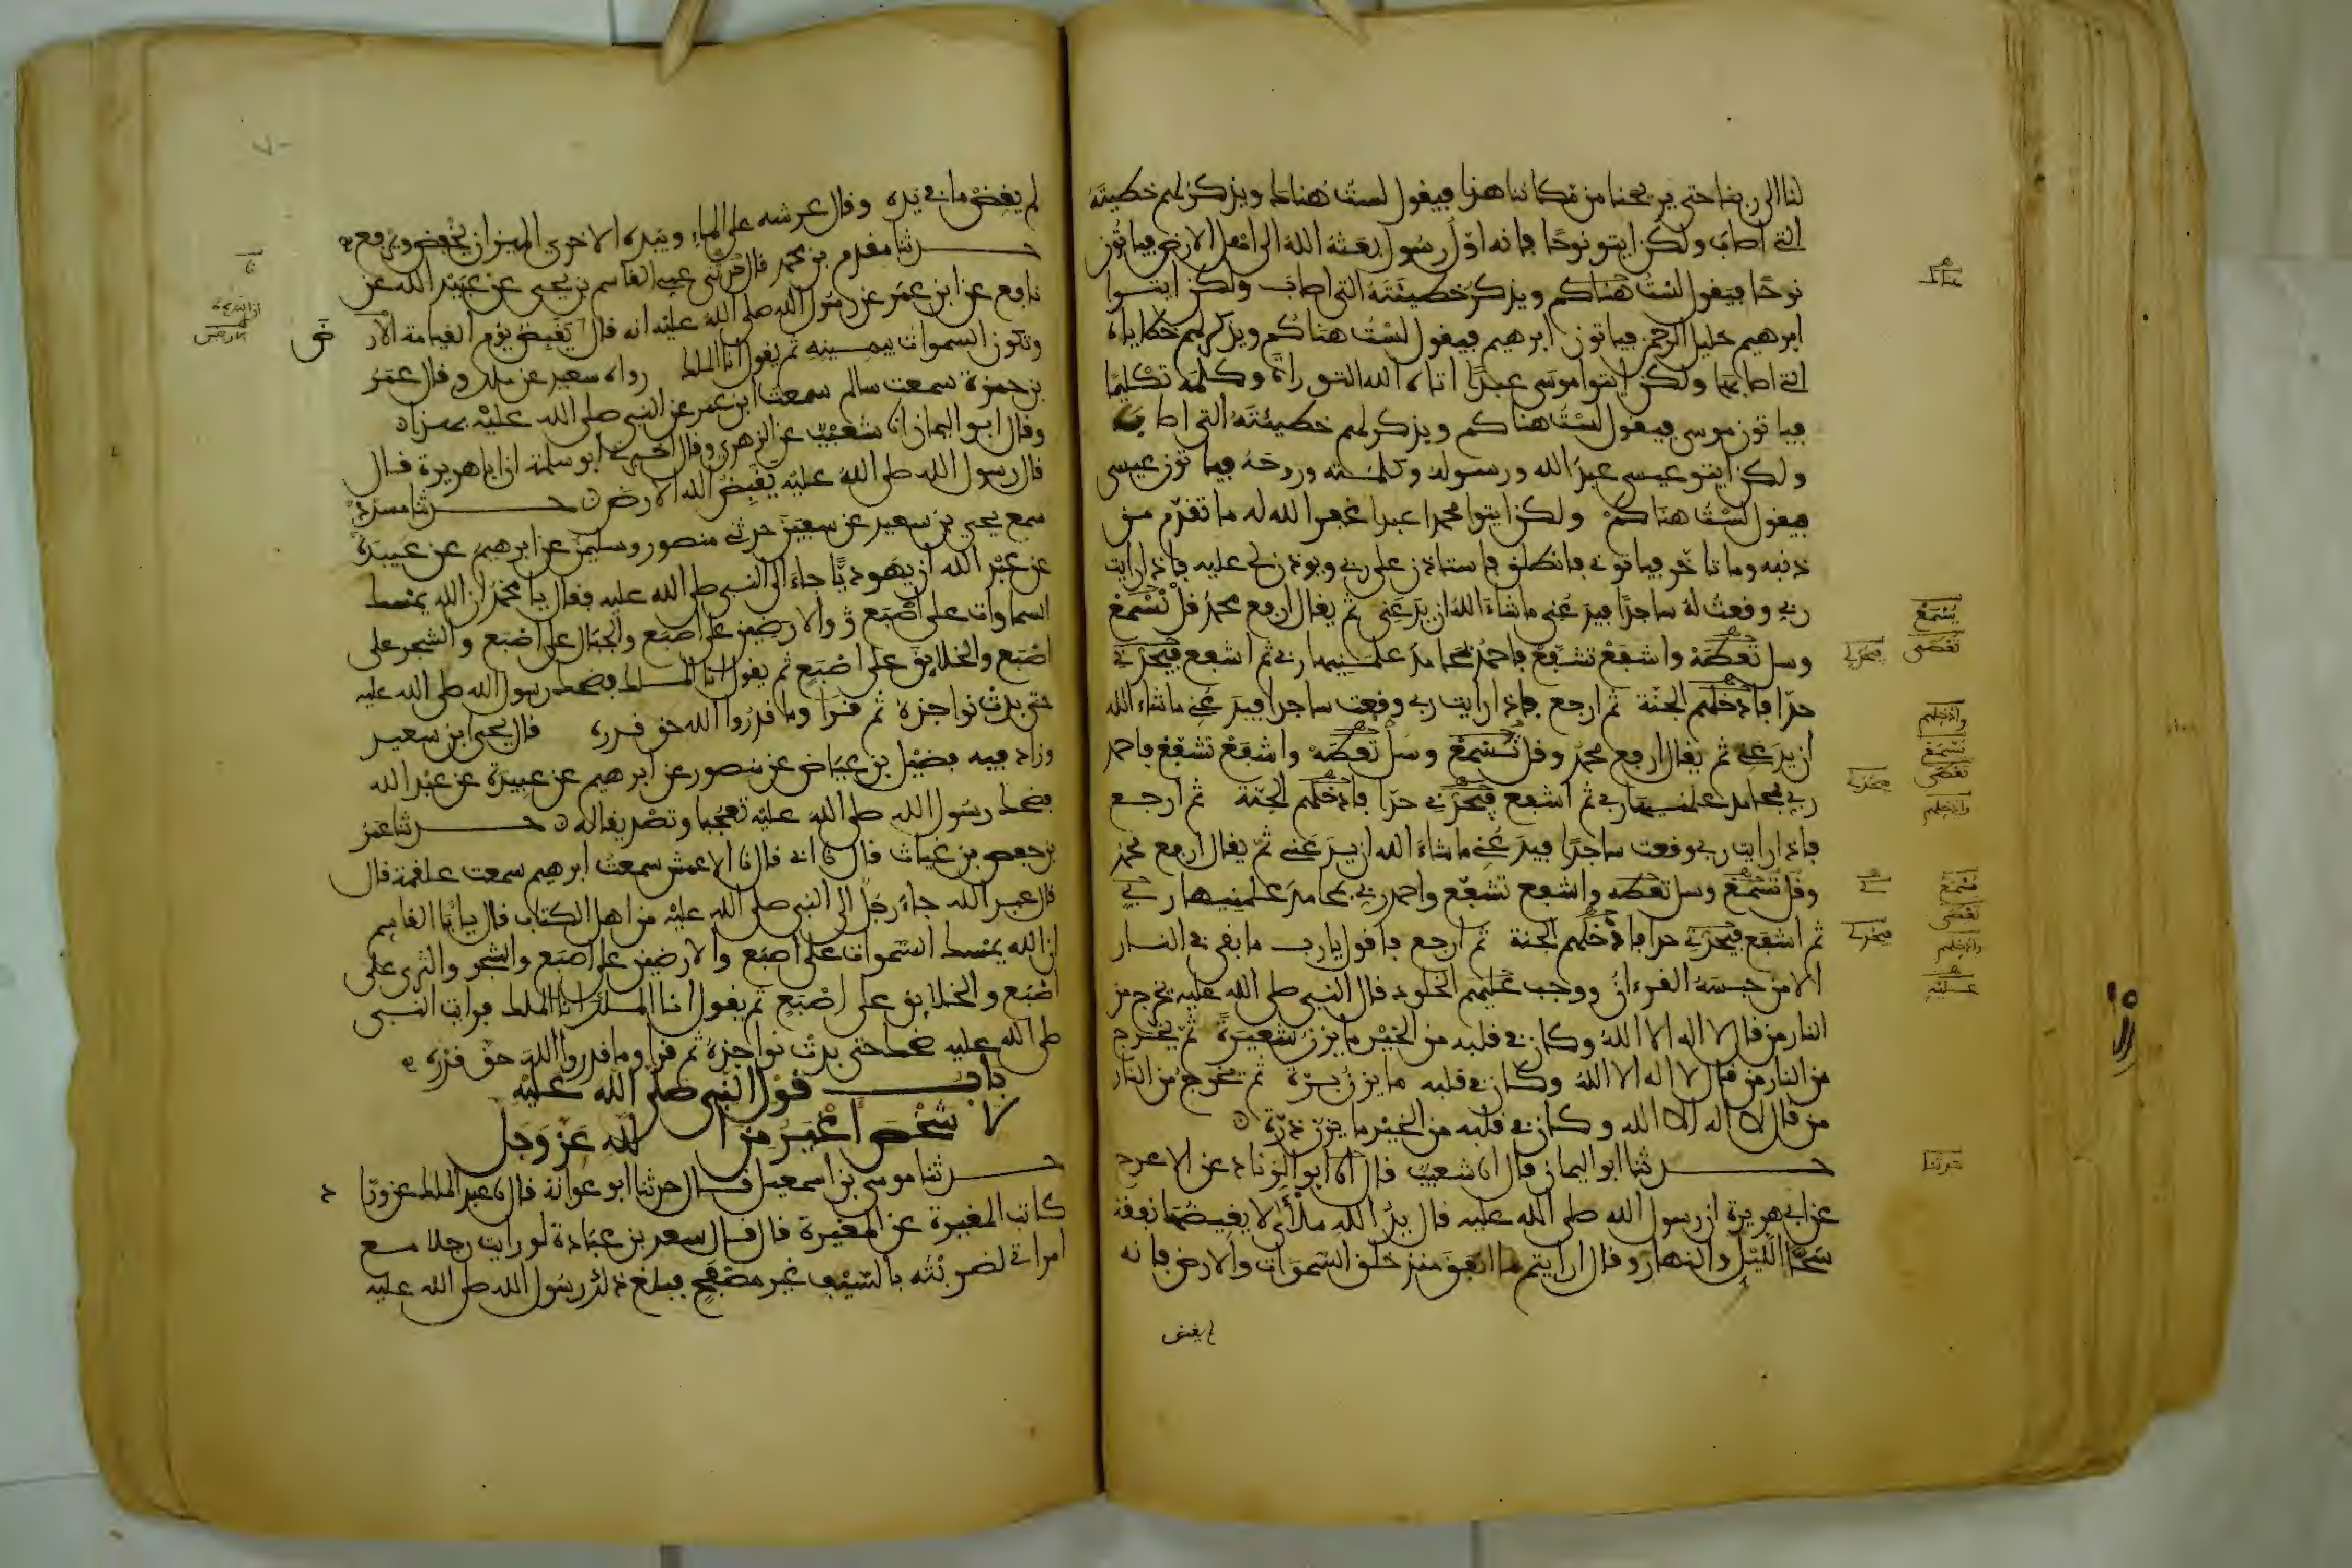 لنا الى ربنا حتى يريحنا من مكاننا هذا فيقول لست هناك ويذكر لهم خطيئته
التي اصاب ولكن ايتو نوحا فانه اول رسول بعثه الله الى اهل الارض فياتون
نوحا فيقول لست هناكم ويذكر خطيئته التي اصاب ولكن ايتوا
ابرهيم خليل الرحمن فياتون ابرهيم فيقول لست هناكم ويذكر لهم خطاياه
التي اصابها ولكن ايتوا موسى عبدا اتاه الله التوراة وكلمه تكليما
فياتون موسى فيقول لست هناكم ويذكر لهم خطيئته التي اصاب
ولكن ايتو عيسى عبد الله ورسوله وكلمته وروحه فياتون عيسى
فيقول لست هناكم ولكن ايتوا محمدا عبدا غفر الله له ما تقدم من
ذنبه وما تاخر فياتوني فانطلق فاستاذن على ربي ويوذن لي عليه فاذا رايت
ربي وقعت له ساجدا فيدعني ما شاء الله ان يدعني ثم يقال ارفع محمد قل تسمع
وسل تعطه واشفع تشفع فاحمد بمحامد علمنيها ربي ثم اشفع فيحد لي
حدا فادخلهم الجنة ثم ارجع فاذا رايت ربي وقعت ساجدا فيدعني ما شاء الله
ان يدعني ثم يقال ارفع محمد وقل تسمع وسل تعطه واشفع تشفع فاحمد
ربي بمحامد علمنيها ربي ثم اشفع فيحد لي حدا فادخلهم الجنة ثم ارجع
فاذا رايت ربي وقعت ساجدا فيدعني ما شاء الله ان يدعني ثم يقال ارفع محمد
وقل تسمع وسل تعطه واشفع تشفع واحمد ربي بمحامد علمنيها ربي
ثم اشفع فيحد لي حدا فادخلهم الجنة ثم ارجع فاقول يا رب ما بقي في النار
الا من حبسه القرءان ووجب عليهم الخلود قال النبي صلى الله عليه يخرج من
النار من قال لا اله الا الله وكان في قلبه من الخير ما يزن شعيرة ثم يخرج
من النار من قال لا اله الا الله وكان في قلبه ما يزن برة ثم يخرج من النار
من قال لا اله الا الله وكان في قلبه من الخير ما يزن ذرة
حدثنا ابو اليمان قال انا شعيب قال انا ابو الزناد عن الاعرج
عن ابي هريرة ان رسول الله صلى الله عليه قال يد الله ملأى لا يغيضها نفقة
سحا الليل والنهار وقال ارايتم ما انفق منذ خلق السموات والارض فانه
لم يغض
يسمع
تعطى
فيحد لي
وادخلهم
تسمع
تعطى
وادخلهم
تسمع
تعطى
فيحد لي
وادخلهم
عليه
حدثنا
لم يغض ما في يده وقال عرشه على الماء وبيده الاخرى الميزان يخفض ويرفع
حدثنا مقدم بن محمد قال حدثني عمي القاسم بن يحيى عن عبيد الله عن
نافع عن ابن عمر عن رسول الله صلى الله عليه انه قال يقبض يوم القيامة الارض
وتكون السموات بيمينه ثم يقول انا الملك رواه سعيد عن ملك وقال عمر
بن حمزة سمعت سالم سمعت ابن عمر عن النبي صلى الله عليه بهذا
وقال ابو اليمان انا شعيب عن الزهري وقال اخبرني ابو سلمة ان ابا هريرة قال
قال رسول الله صلى الله عليه يقبض الله الارض حدثنا مسدد
سمع يحيى بن سعيد عن سفين حدثني منصور وسليمن عن ابرهيم عن عبيدة
عن عبد الله ان يهوديا جاء الى النبي صلى الله عليه فقال يا محمد ان الله يمسك
السماوات على اصبع والارضين على اصبع والجبال على اصبع والشجر على
اصبع والخلايق على اصبع ثم يقول انا الملك فضحك رسول الله صلى الله عليه
حتى بدت نواجذه ثم قرا وما قدروا الله حق قدره قال يحيى ابن سعيد
وزاد فيه فضيل بن عياض عن منصور عن ابرهيم عن عبيدة عن عبد الله
فضحك رسول الله صلى الله عليه تعجبا وتصديقا له حدثنا عمر
بن حفص بن غياث قال نا ابي قال نا الاعمش سمعت ابرهيم سمعت علقمة قال
قال عبد الله جاء رجل الى النبي صلى الله عليه من اهل الكتاب فقال يا ابا القاسم
ان الله يمسك السموات على اصبع والارضين على اصبع والشجر والثرى على
اصبع والخلايق على اصبع ثم يقول انا الملك انا الملك فرايت النبي
صلى الله عليه ضحك حتى بدت نواجذه ثم قرا وما قدروا الله حق قدره
باب قول النبي صلى الله عليه
لا شخص اغير من الله عز وجل
حدثنا موسى بن اسمعيل قال حدثنا ابو عوانة قال نا عبد الملك عن وراد
كاتب المغيرة عن المغيرة قال قال سعد بن عبادة لو رايت رجلا مع
امراتي لضربته بالسيف غير مصفح فبلغ ذلك رسول الله صلى الله عليه